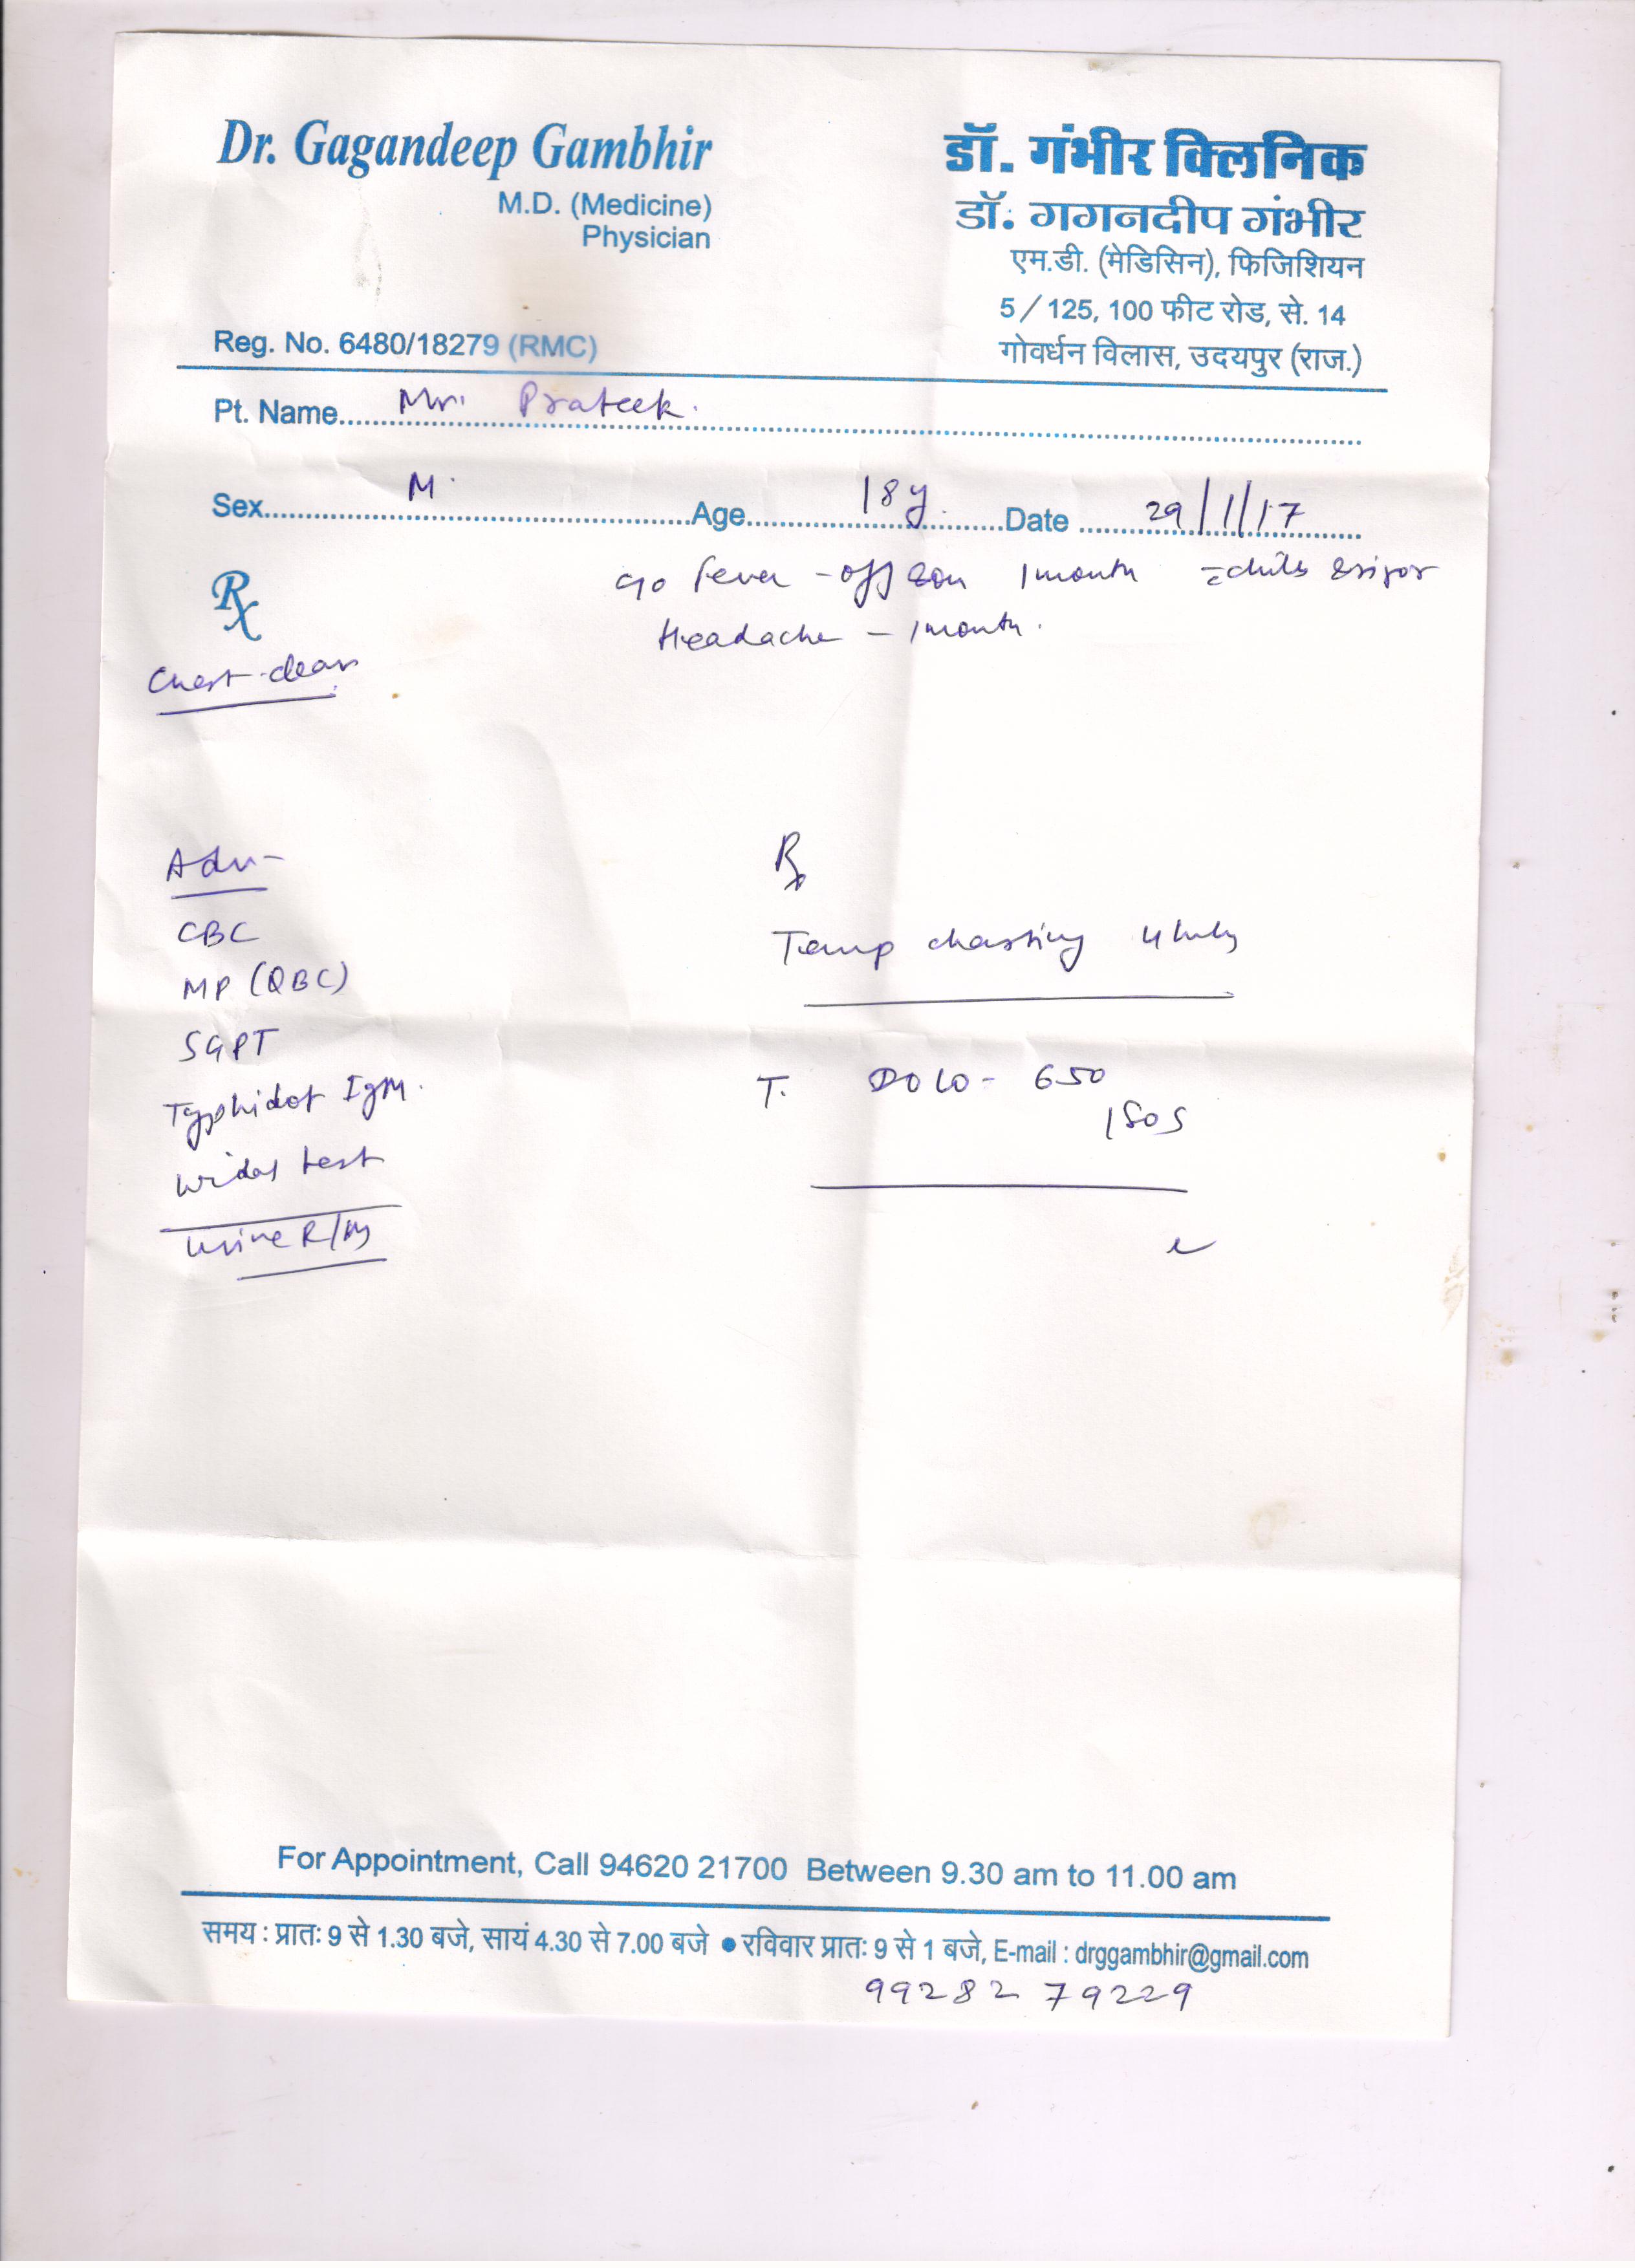 Dr. Gagandeep Gambhir
M.D. (Medicine)
Physician
Reg. No. 6480/18279 (RMC)
डॉ. गंभीर क्लिनिक
डॉ. गगनदीप गंभीर
एम.डी. (मेडिसिन), फिजिशियन
5/125, 100 फीट रोड, से. 14
गोवर्धन विलास, उदयपुर (राज.)
Pt. Name Mr. Prateek.
Sex M. Age 18y. Date 29/1/17
Rx
c/o fever - off & on 1 month c chills & rigor
Headache - 1 month.
Chest - clear
Adv -
CBC
MP (QBC)
SGPT
Typhidot IgM.
Widal test
Urine R/M
Rx
Temp charting 4 hrly
T. DOLO - 650
1 SOS
For Appointment, Call 94620 21700 Between 9.30 am to 11.00 am
समय : प्रातः 9 से 1.30 बजे, सायं 4.30 से 7.00 बजे ● रविवार प्रातः 9 से 1 बजे, E-mail : drggambhir@gmail.com
99282 79229